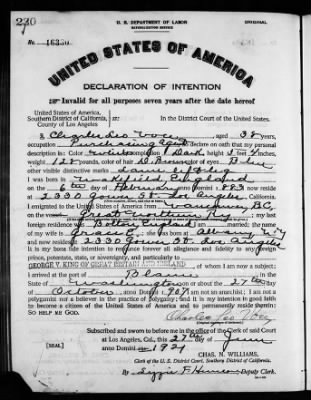 230
U. S. DEPARTMENT OF LABOR
NATURALIZATION SERVICE
ORIGINAL
No. 16330
UNITED STATES OF AMERICA
DECLARATION OF INTENTION
Invalid for all purposes seven years after the date hereof
United States of America,
Southern District of California, ss:
County of Los Angeles
In the District Court of the United States.
I, Charles Leo aged 38 years,
occupation Purchasing Agent, do declare on oath that my personal
description is: Color White, complexion Dark, height 5 feet inches,
weight 128 pounds, color of hair D. Brown, color of eyes Blue
other visible distinctive marks
I was born in Wakefield England
on the 6th day of February, anno Domini 1883; I now reside
at 2330 Gower St. Los Angeles, California.
I emigrated to the United States of America from Vancouver, BC.
on the Great Northern Ry.; my last
foreign residence was Bolton England; I am married; the name
of my wife is; she was born at Albany, N.Y
and now resides at 2330 Gower St. Los Angeles
It is my bona fide intention to renounce forever all allegiance and fidelity to any foreign
prince, potentate, state, or sovereignty, and particularly to
GEORGE V. KING OF GREAT BRITAIN AND IRELAND, of whom I am now a subject;
I arrived at the port of Blaine, in the
State of Washington, on or about the 27th day
of October, anno Domini 1909; I am not an anarchist; I am not a
polygamist nor a believer in the practice of polygamy; and it is my intention in good faith
to become a citizen of the United States of America and to permanently reside therein:
SO HELP ME GOD.
Charles Leo
Subscribed and sworn to before me in the office of the Clerk of said Court
at Los Angeles, Cal., this 27th day of June
anno Domini 1921
[SEAL]
CHAS. N. WILLIAMS,
Clerk of the U. S. District Court, Southern District of California.
By, Deputy Clerk.